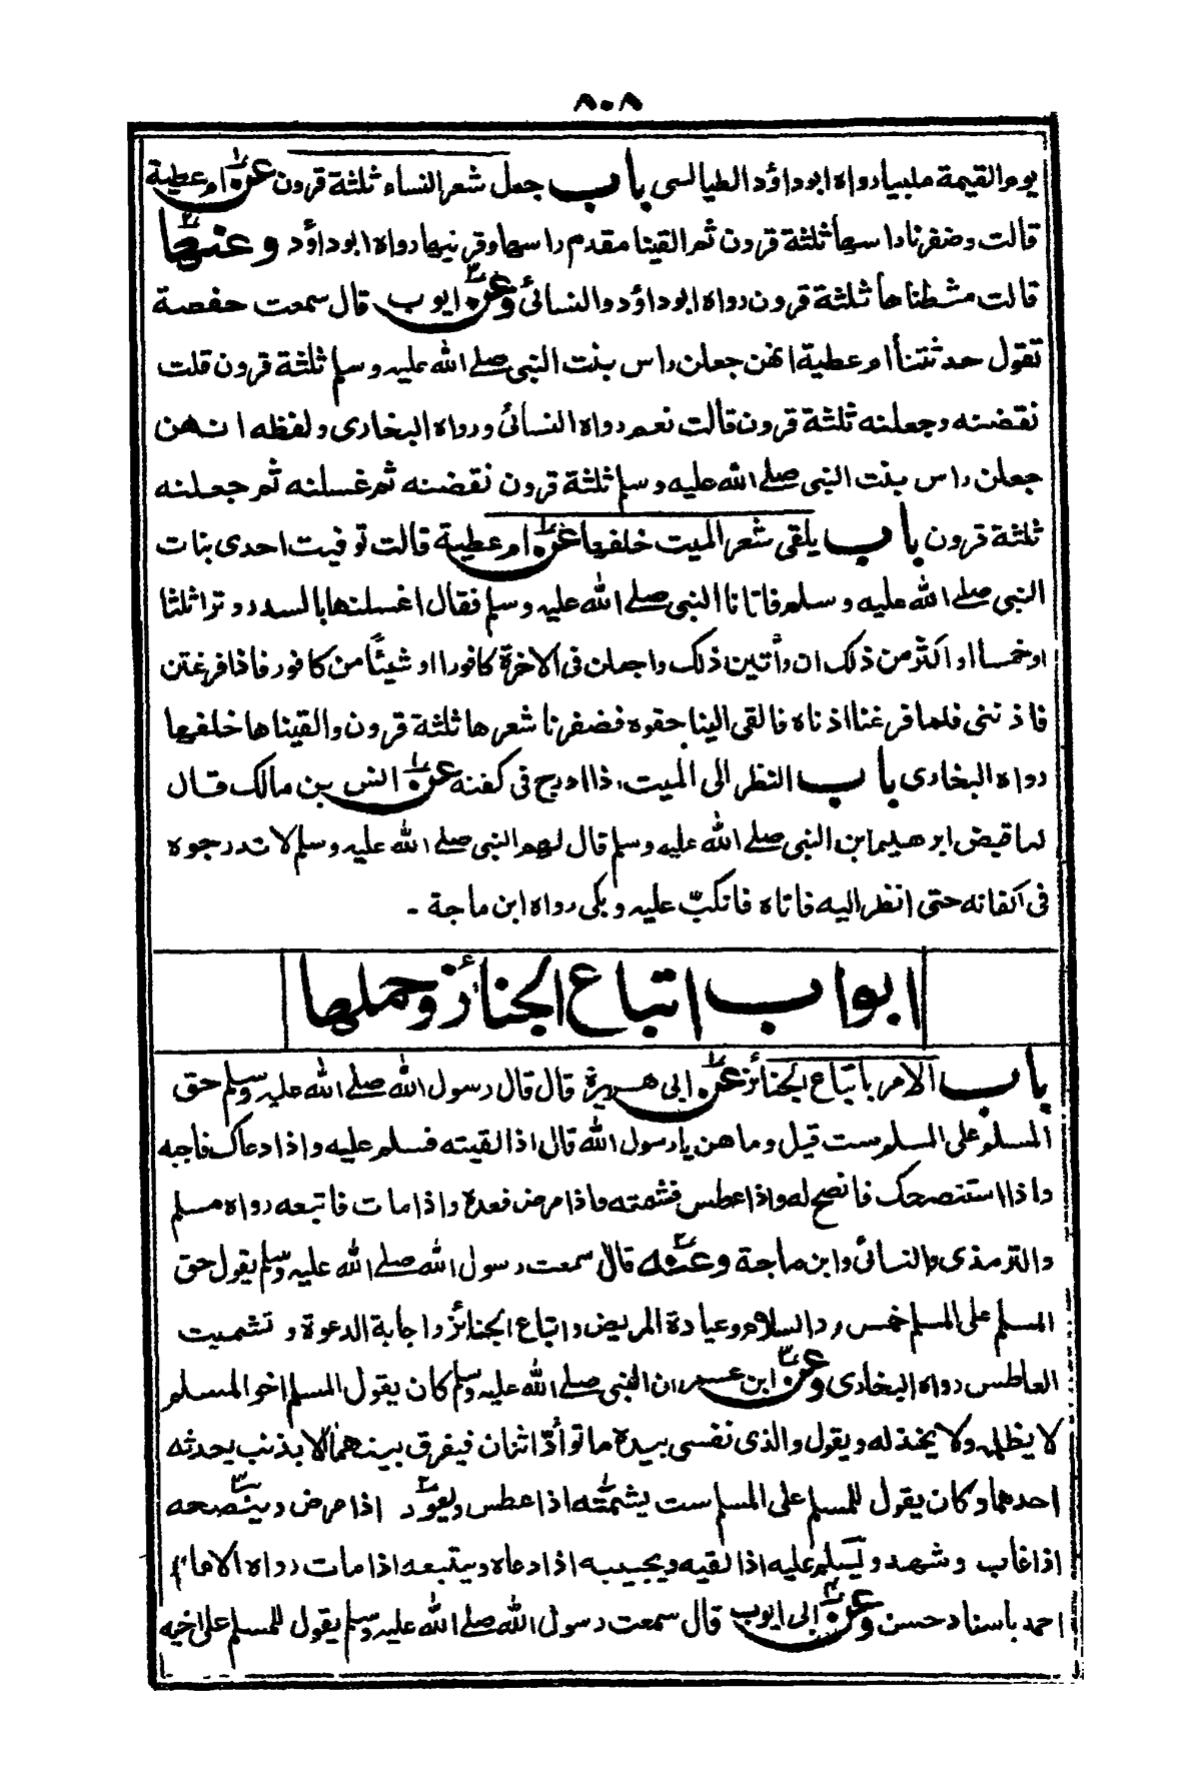 ٨٠٨
يوم القيمة ملبيا رواه ابوداؤد الطيالسى باب جعل شعر النساء ثلثة قرون عن ام عطية
قالت وضفرنا راسها ثلثة قرون ثم القينا مقدم راسها وقرنيها رواه ابوداؤد وعنها
قالت مشطناها ثلثة قرون رواه ابوداؤد والنسائى وعن ايوب قال سمعت حفصة
تقول حدثتنا ام عطية انهن جعلن راس بنت النبى صلے الله عليه وسلم ثلثة قرون قلت
نقضنه وجعلنه ثلثة قرون قالت نعم رواه النسائى ورواه البخارى ولفظه انهن
جعلن راس بنت النبى صلے الله عليه وسلم ثلثة قرون نقضنه ثم غسلنه ثم جعلنه
ثلثة قرون باب يلقى شعر الميت خلفها عن ام عطية قالت توفيت احدى بنات
النبى صلے الله عليه وسلم فاتانا النبى صلے الله عليه وسلم فقال اغسلنها بالسدر وترا ثلثا
اوخمسا او اكثر من ذلك ان رأتين ذلك واجعلن فى الاخرة كافورا او شيئا من كافور فاذا فرغتن
فاذننى فلما فرغنا اذناه فالقى الينا حقوه فضفرنا شعرها ثلثة قرون والقيناها خلفها
رواه البخارى باب النظر الى الميت اذا ادرج فى كفنه عن انس بن مالك قال
لما قبض ابرهيم ابن النبى صلے الله عليه وسلم قال لهم النبى صلے الله عليه وسلم لا تدرجوه
فى اكفانه حتى انظر اليه فاتاه فانكبّ عليه وبكى رواه ابن ماجة -
ابواب اتباع الجنائز وحملها
باب الامر باتباع الجنائز عن ابى هريرة قال قال رسول الله صلے الله عليه وسلم حق
المسلم على المسلم ست قيل وما هن يا رسول الله قال اذا لقيته فسلم عليه واذا دعاك فاجبه
واذا استنصحك فانصح له واذا عطس فشمته واذا مرض فعدة واذا مات فاتبعه رواه مسلم
والترمذى والنسائى وابن ماجة وعنه قال سمعت رسول الله صلے الله عليه وسلم يقول حق
المسلم على المسلم خمس رد السلام وعيادة المريض واتباع الجنائز واجابة الدعوة وتشميت
العاطس رواه البخارى وعن ابن عمر ان النبى صلے الله عليه وسلم كان يقول المسلم اخو المسلم
لا يظلمه ولا يخذله ويقول والذى نفسى بيده ما توادّ اثنان فيفرق بينهما الا بذنب يحدثه
احدهما وكان يقول للمسلم على المسلم ست يشمته اذا عطس ويعود اذا مرض وينصحه
اذا غاب وشهد ويسلم عليه اذا لقيه ويجيبه اذا دعاه ويتبعه اذا مات رواه الامام
احمد باسناد حسن وعن ابى ايوب قال سمعت رسول الله صلے الله عليه وسلم يقول للمسلم على اخيه